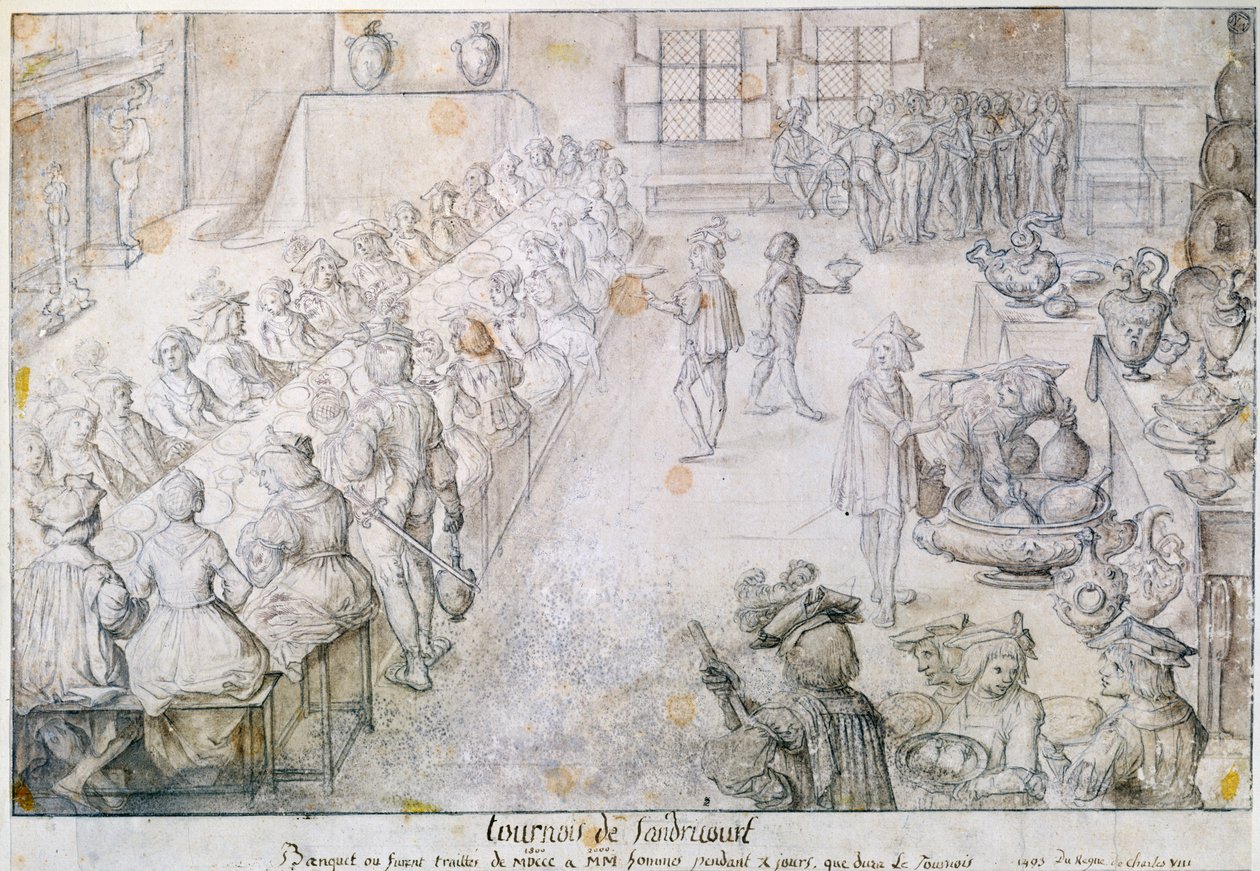 tournois de Sandricourt
1800 2000
Banquet ou furent traittés de MDCCC a MM hommes pendant X jours, que dura Le Tournois 1493 Du Regne de Charles VIII